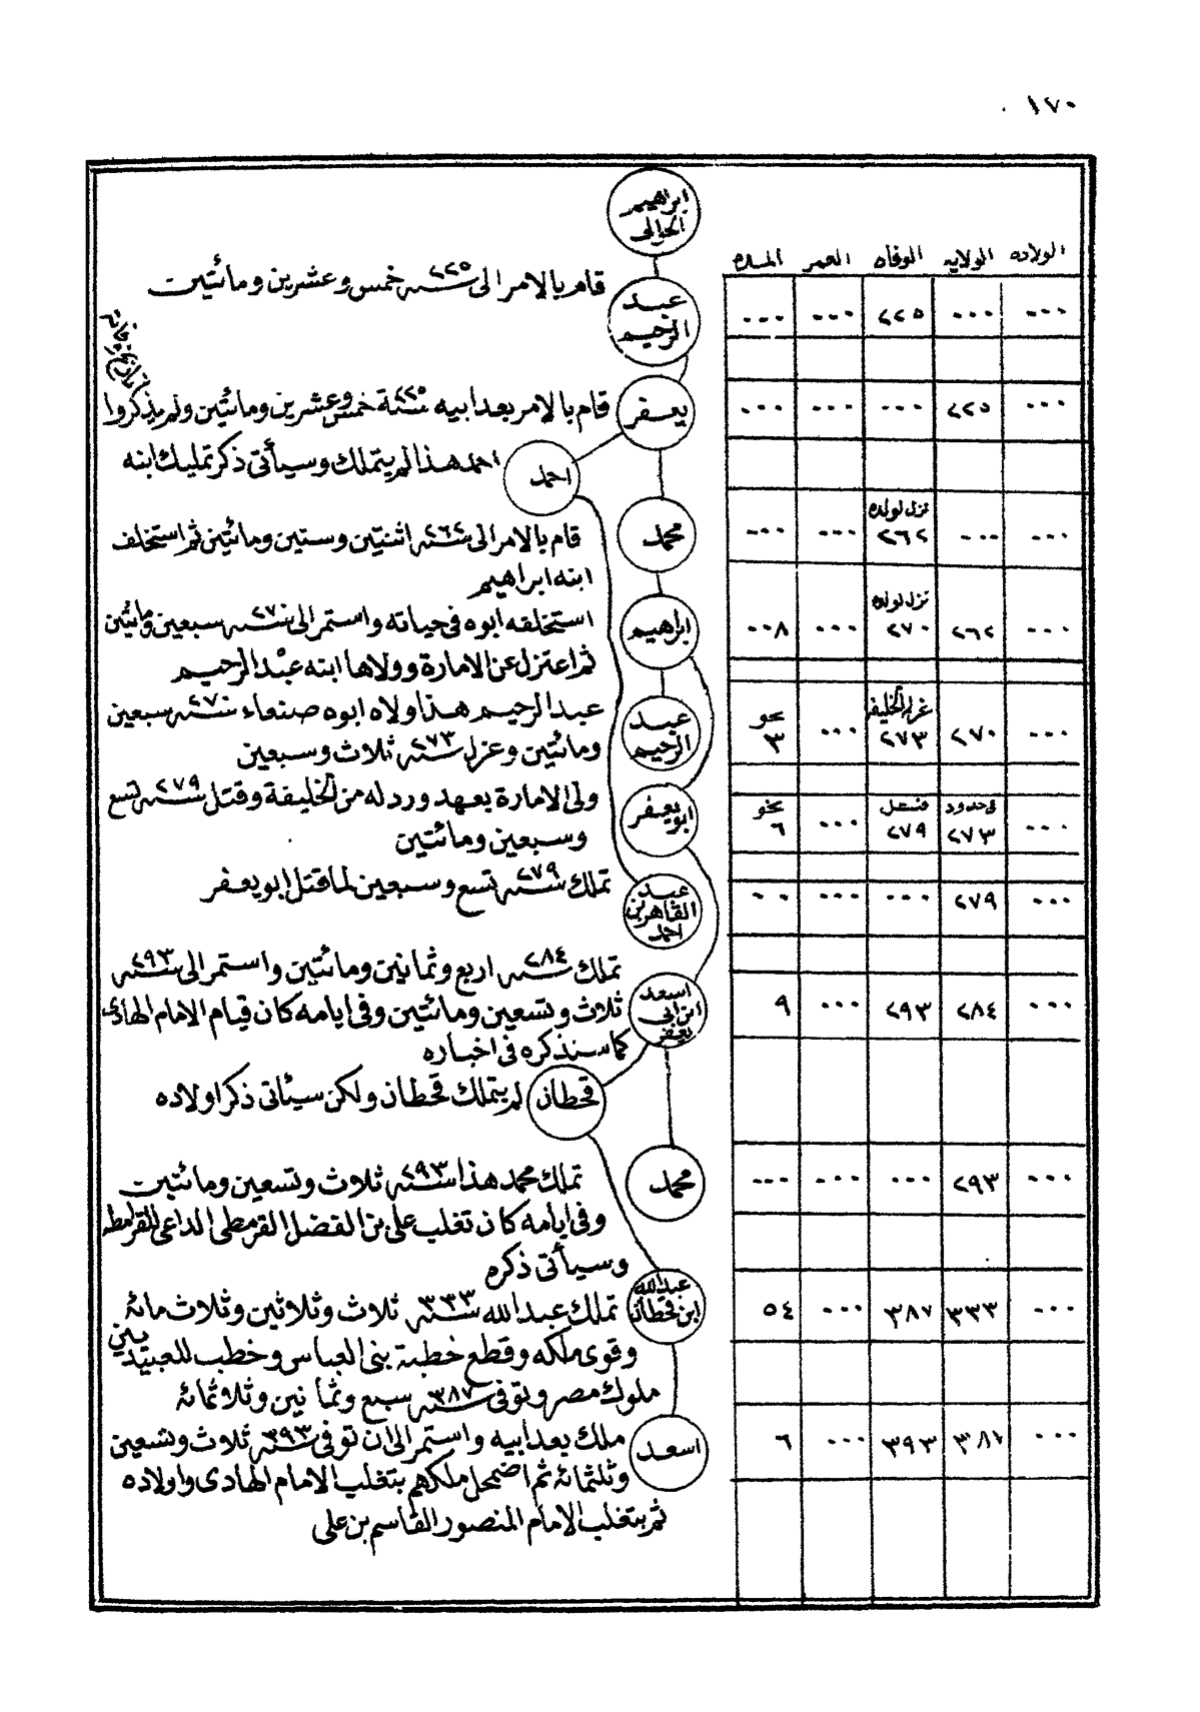 ١٧٠
الولاده الولايه الوفاه العمر المده
ابراهيم
الحوالى
عبد
الرحيم
قام بالامر الى سنه ٢٢٥ خمس وعشرين ومائتين
... ... ٢٢٥ ... ...
يعفر
قام بالامر بعد ابيه سنة ٢٢٥ خمس وعشرين ومائتين ولم يذكروا
تاريخ وفاته
... ٢٢٥ ... ... ...
احمد
احمد هذا لم يتملك وسيأتى ذكر تمليك ابنه
محمد
قام بالامر الى سنه ٢٦٢ اثنتين وستين ومائتين ثم استخلف
ابنه ابراهيم
نزل لولده
... ... ٢٦٢ ... ...
ابراهيم
استخلفه ابوه فى حياته واستمر الى سنه ٢٧٠ سبعين ومائتين
ثم اعتزل عن الامارة وولاها ابنه عبد الرحيم
نزل لولده
... ٢٦٢ ٢٧٠ ... ٠٠٨
عبد
الرحيم
عبد الرحيم هذا ولاه ابوه صنعاء سنه ٢٧٠ سبعين
ومائتين وعزل سنه ٢٧٣ ثلاث وسبعين
نحو
... ٢٧٠ ٢٧٣ ... ٣
ابو يعفر
ولى الامارة بعهد ورد له من الخليفة وقتل سنه ٢٧٩ تسع
وسبعين ومائتين
فى حدود نحو
... ٢٧٣ ٢٧٩ ... ٦
عبد
القاهر بن
احمد
تملك سنه ٢٧٩ تسع وسبعين لما قتل ابو يعفر
... ٢٧٩ ... ... ..
اسعد
ابن ابى
يعفر
تملك سنه ٢٨٤ اربع وثمانين ومائتين واستمر الى سنه ٢٩٣
ثلاث وتسعين ومائتين وفى ايامه كان قيام الامام الهادى
كما سنذكره فى اخباره
... ٢٨٤ ٢٩٣ ... ٩
قحطان
لم يتملك قحطان ولكن سيأتى ذكر اولاده
محمد
تملك محمد هذا سنه ٢٩٣ ثلاث وتسعين ومائتين
وفى ايامه كان تغلب على بن الفضل القرمطى الداعى للقرامطه
وسيأتى ذكره
... ٢٩٣ ... ... ...
عبد الله
ابن قحطان
تملك عبد الله سنه ٣٣٣ ثلاث وثلاثين وثلاث مائة
وقوى ملكه وقطع خطبة بنى العباس وخطب للعبيديين
ملوك مصر وتوفى سنه ٣٨٧ سبع وثمانين وثلاثمائة
... ٣٣٣ ٣٨٧ ... ٥٤
اسعد
ملك بعد ابيه واستمر الى ان توفى سنه ٣٩٣ ثلاث وتسعين
وثلثمائة ثم اضمحل ملكهم بتغلب الامام الهادى واولاده
ثم بتغلب الامام المنصور القاسم بن على
... ٣٨٧ ٣٩٣ ... ٦